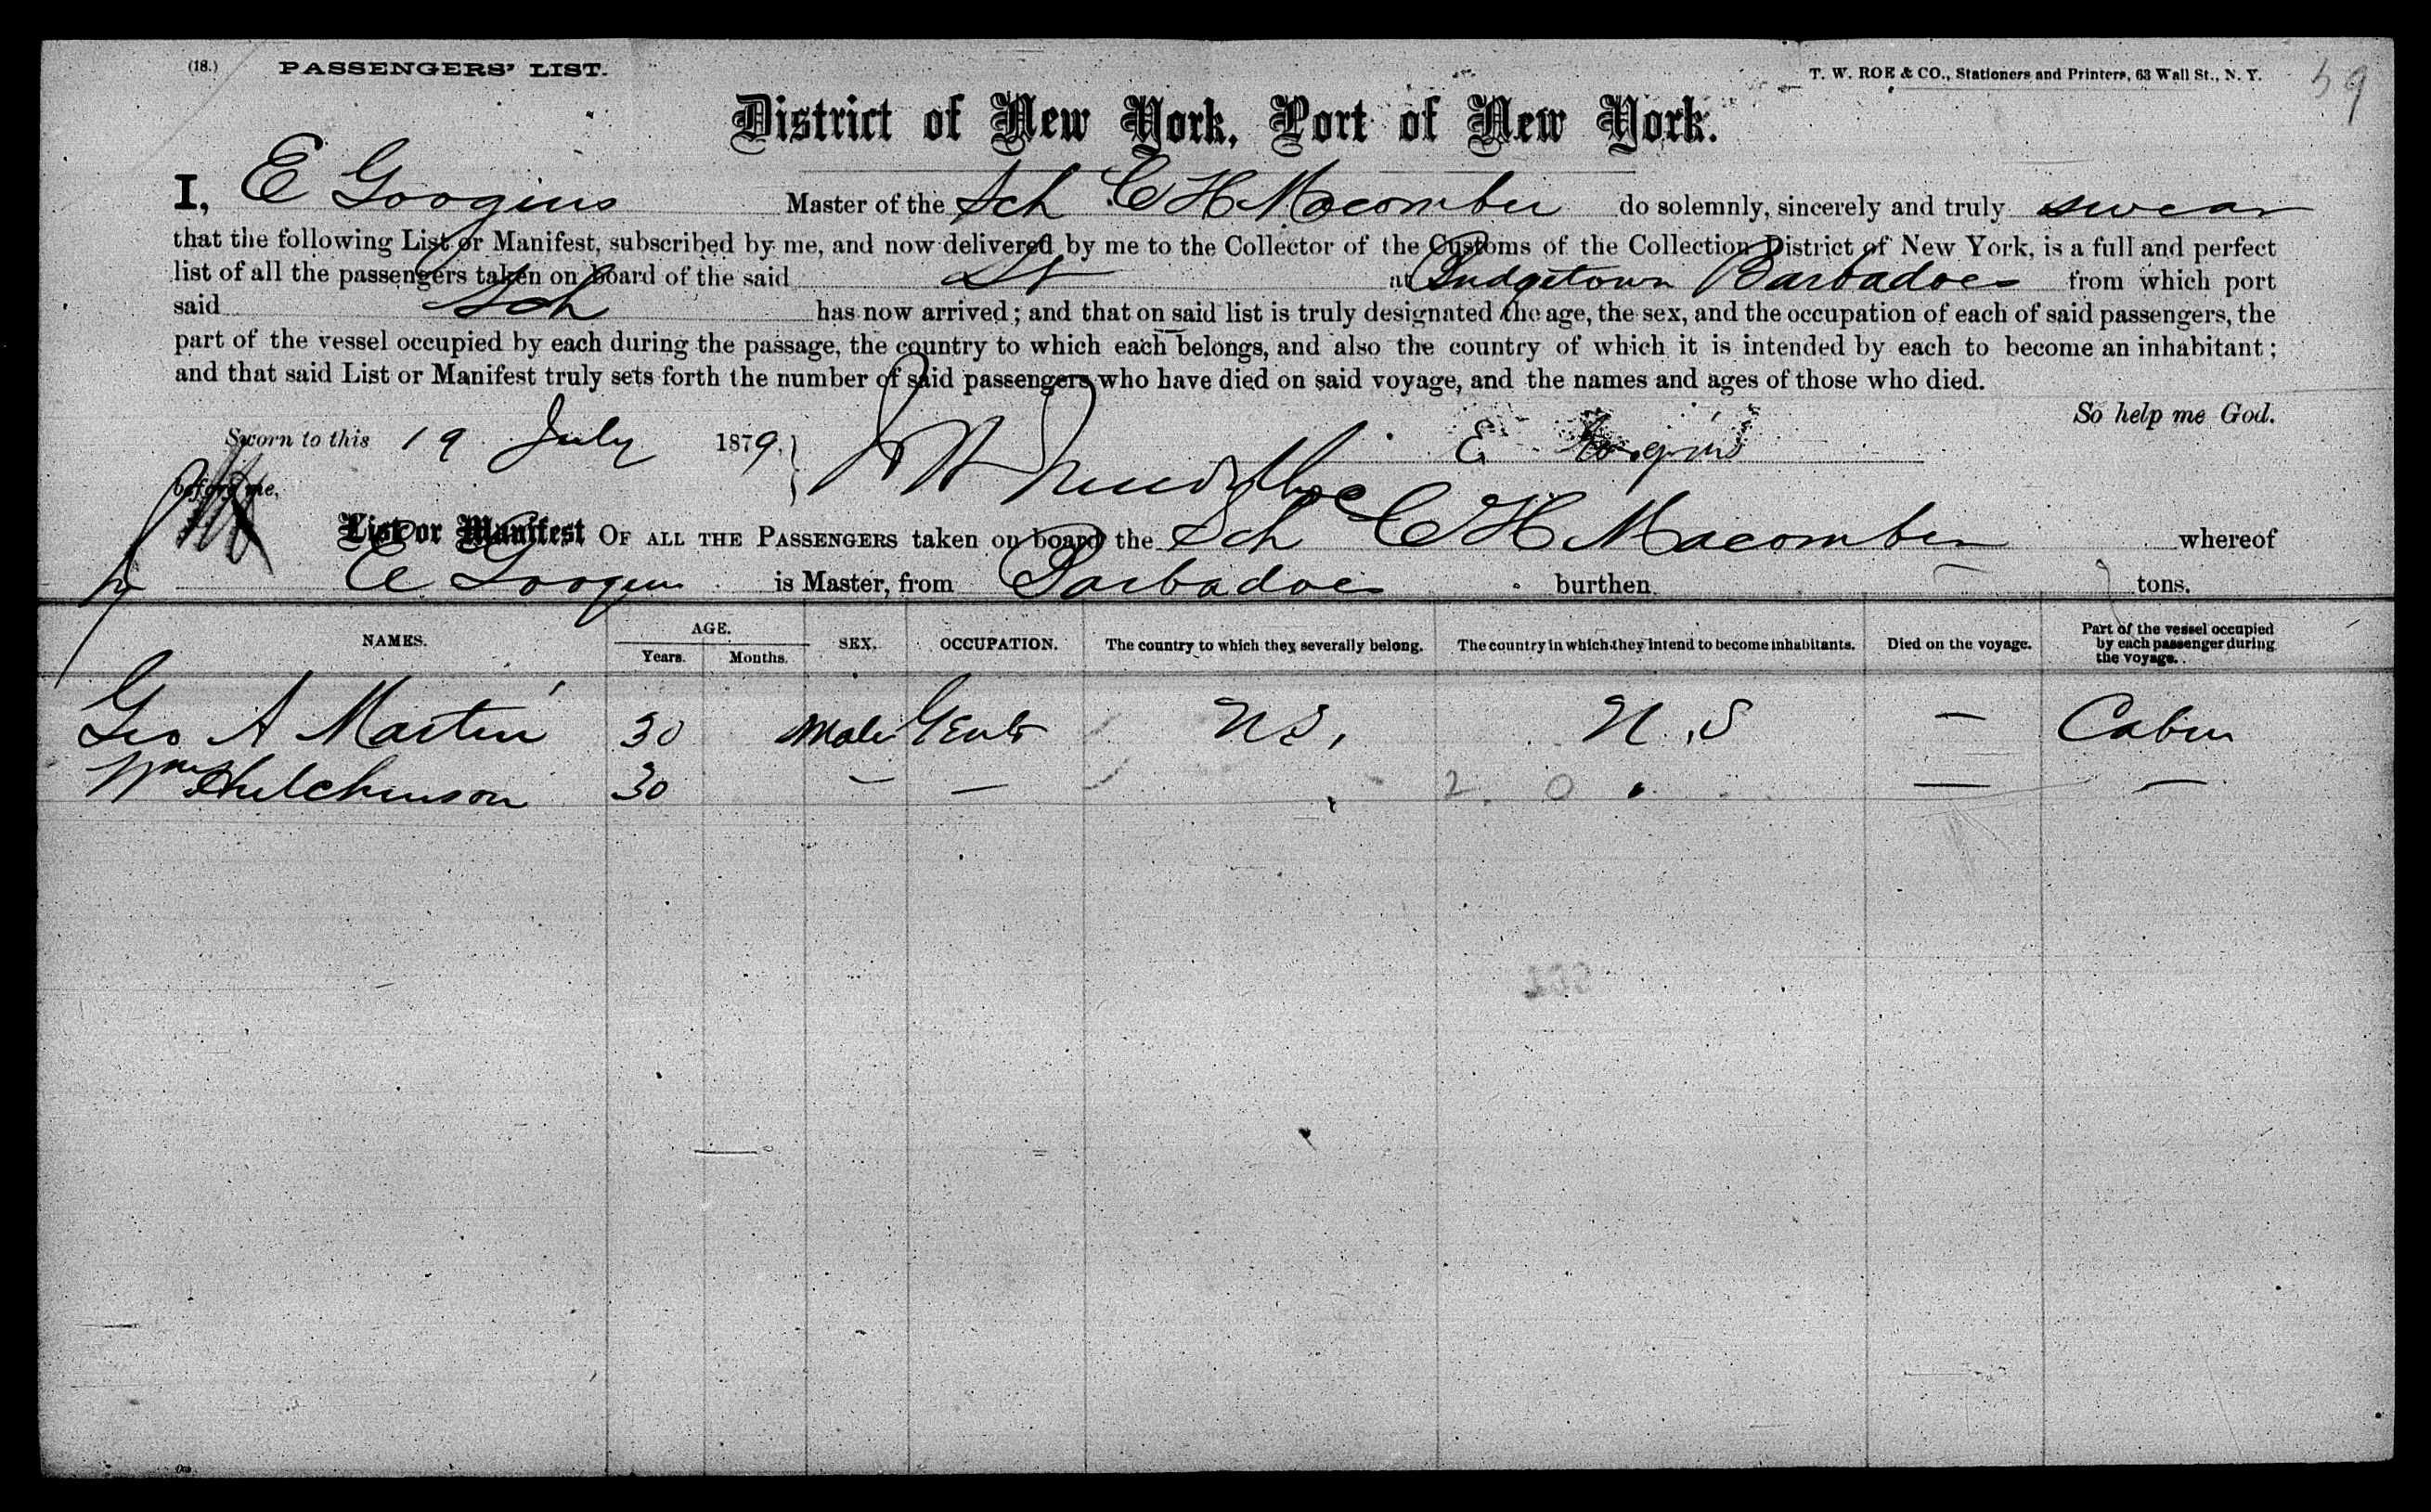 (18.) PASSENGERS' LIST. T. W. ROE & CO., Stationers and Printers, 63 Wall St., N. Y. 59
District of New York, Port of New York.
I, E Googins Master of the Sch C H Macomber do solemnly, sincerely and truly swear
that the following List or Manifest, subscribed by me, and now delivered by me to the Collector of the Customs of the Collection District of New York, is a full and perfect
list of all the passengers taken on board of the said at Bridgetown Barbadoes from which port
said Sch has now arrived; and that on said list is truly designated the age, the sex, and the occupation of each of said passengers, the
part of the vessel occupied by each during the passage, the country to which each belongs, and also the country of which it is intended by each to become an inhabitant;
and that said List or Manifest truly sets forth the number of said passengers who have died on said voyage, and the names and ages of those who died.
So help me God.
Sworn to this 19 July 1879. E Googins
before me,
List or Manifest OF ALL THE PASSENGERS taken on board the Sch C H Macomber whereof
E Googins is Master, from Barbadoes burthen tons.
NAMES. AGE. Years. Months. SEX. OCCUPATION. The country to which they severally belong. The country in which they intend to become inhabitants. Died on the voyage. Part of the vessel occupied by each passenger during the voyage.
Geo A Martin 30 Male Gent U S, U.S — Cabin
Wm Hutchinson 30 — — 2 0 — —